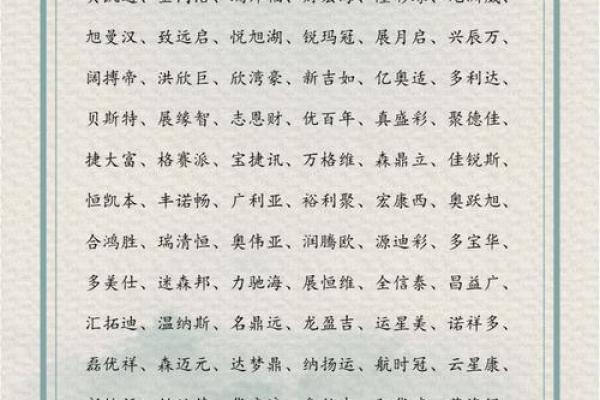 旭曼汉、致远启、悦旭湖、锐玛冠、展月启、兴辰万、
阔搏帝、洪欣巨、欣湾豪、新吉如、亿奥适、多利达、
贝斯特、展缘智、志恩财、优百年、真盛彩、聚德佳、
捷大富、格赛派、宝捷讯、万格维、森鼎立、佳锐斯、
恒凯本、丰诺畅、广利亚、裕利聚、宏康西、奥跃旭、
合鸿胜、瑞清恒、奥伟亚、润腾欧、源迪彩、多宝华、
多美仕、迷森邦、力驰海、展恒维、全信泰、昌益广、
汇拓迪、温纳斯、名鼎远、龙盈吉、运星美、诺祥多、
磊优祥、森迈元、达梦鼎、纳扬运、航时冠、云星康、